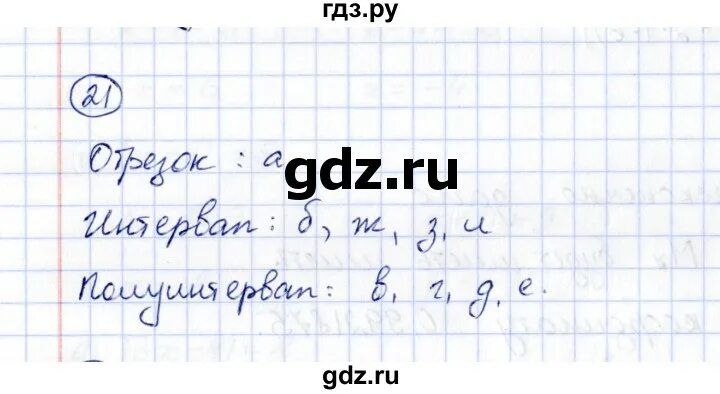 гдз.ру
21
Отрезок : а
gdz.ru
Интервал : б, ж, з, и
Полуинтервал : в, г, д, е.
gdz.ru